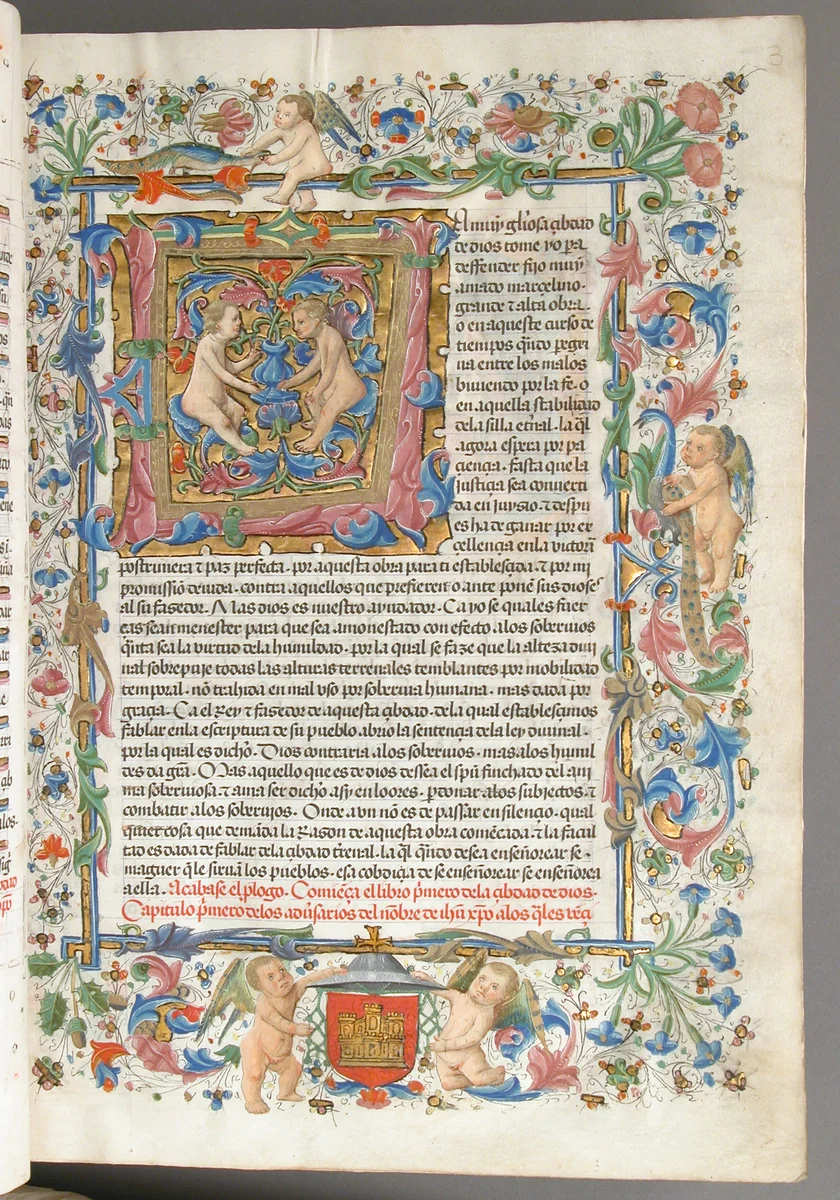 3
A muy gl'iosa çibdad
de dios tome yo pa
deffender fijo muy
amado marcelino·
grande τ alta obra·
o en aqueste curso de
tiempos qñdo pegri
na entre los malos
biuiendo por la fe· o
en aquella stabilidad
de la silla etñal· la ql
agora espera por pa
çiençia· fasta que la
justiçia sea conuerti
da en juysio· τ despu
es ha de ganar por ex
cellençia en la victoria
postrimera τ paz perfecta· por aquesta obra para ti establesçida· τ por mi
promissiõ deuida· contra aquellos que prefieren o ante ponẽ sus dioses
al su fasedor· Mas dios es nuestro ayudador· Ca yo se quales fuer
ças sean menester para que sea amonestado con efecto a los soberuios
qñta sea la virtud de la humildad· por la qual se faze que la alteza diui
nal sobrepuje todas las alturas terrenales temblantes por mobilidad
temporal· nõ trahida en mal vso por soberuia humana· mas dada por
graçia· Ca el Rey τ fasedor de aquesta çibdad· de la qual establesçimos
fablar en la escriptura de su pueblo abrio la sentençia de la ley diuinal·
por la qual es dicho· Dios contraria a los soberuios· mas a los humil
des da gr̃a· Mas aquello que es de dios dessea el spũ finchado del ani
ma soberuiosa τ ama ser dicho assy en loores· pdonar a los subiectos τ
combatir a los soberuios· Onde avn nõ es de passar en silençio· qual
quier cosa que demãda la Rason de aquesta obra comẽçada· τ la facul
tad es dada de fablar de la çibdad tr̃enal· la ql qñdo desea enseñorear se·
maguer qle siruã los pueblos· esa cobdiçia de se enseñorear se enseñorea
a ella· Acabase el plogo· Comiẽça el libro pmero de la çibdad de dios·
Capitulo pmero de los adũsarios del nõbre de ihũ xpo a los qles